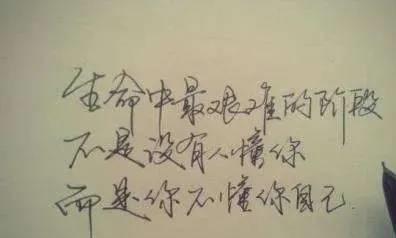 生命中最艰难的阶段
不是没有人懂你
而是你不懂你自己.